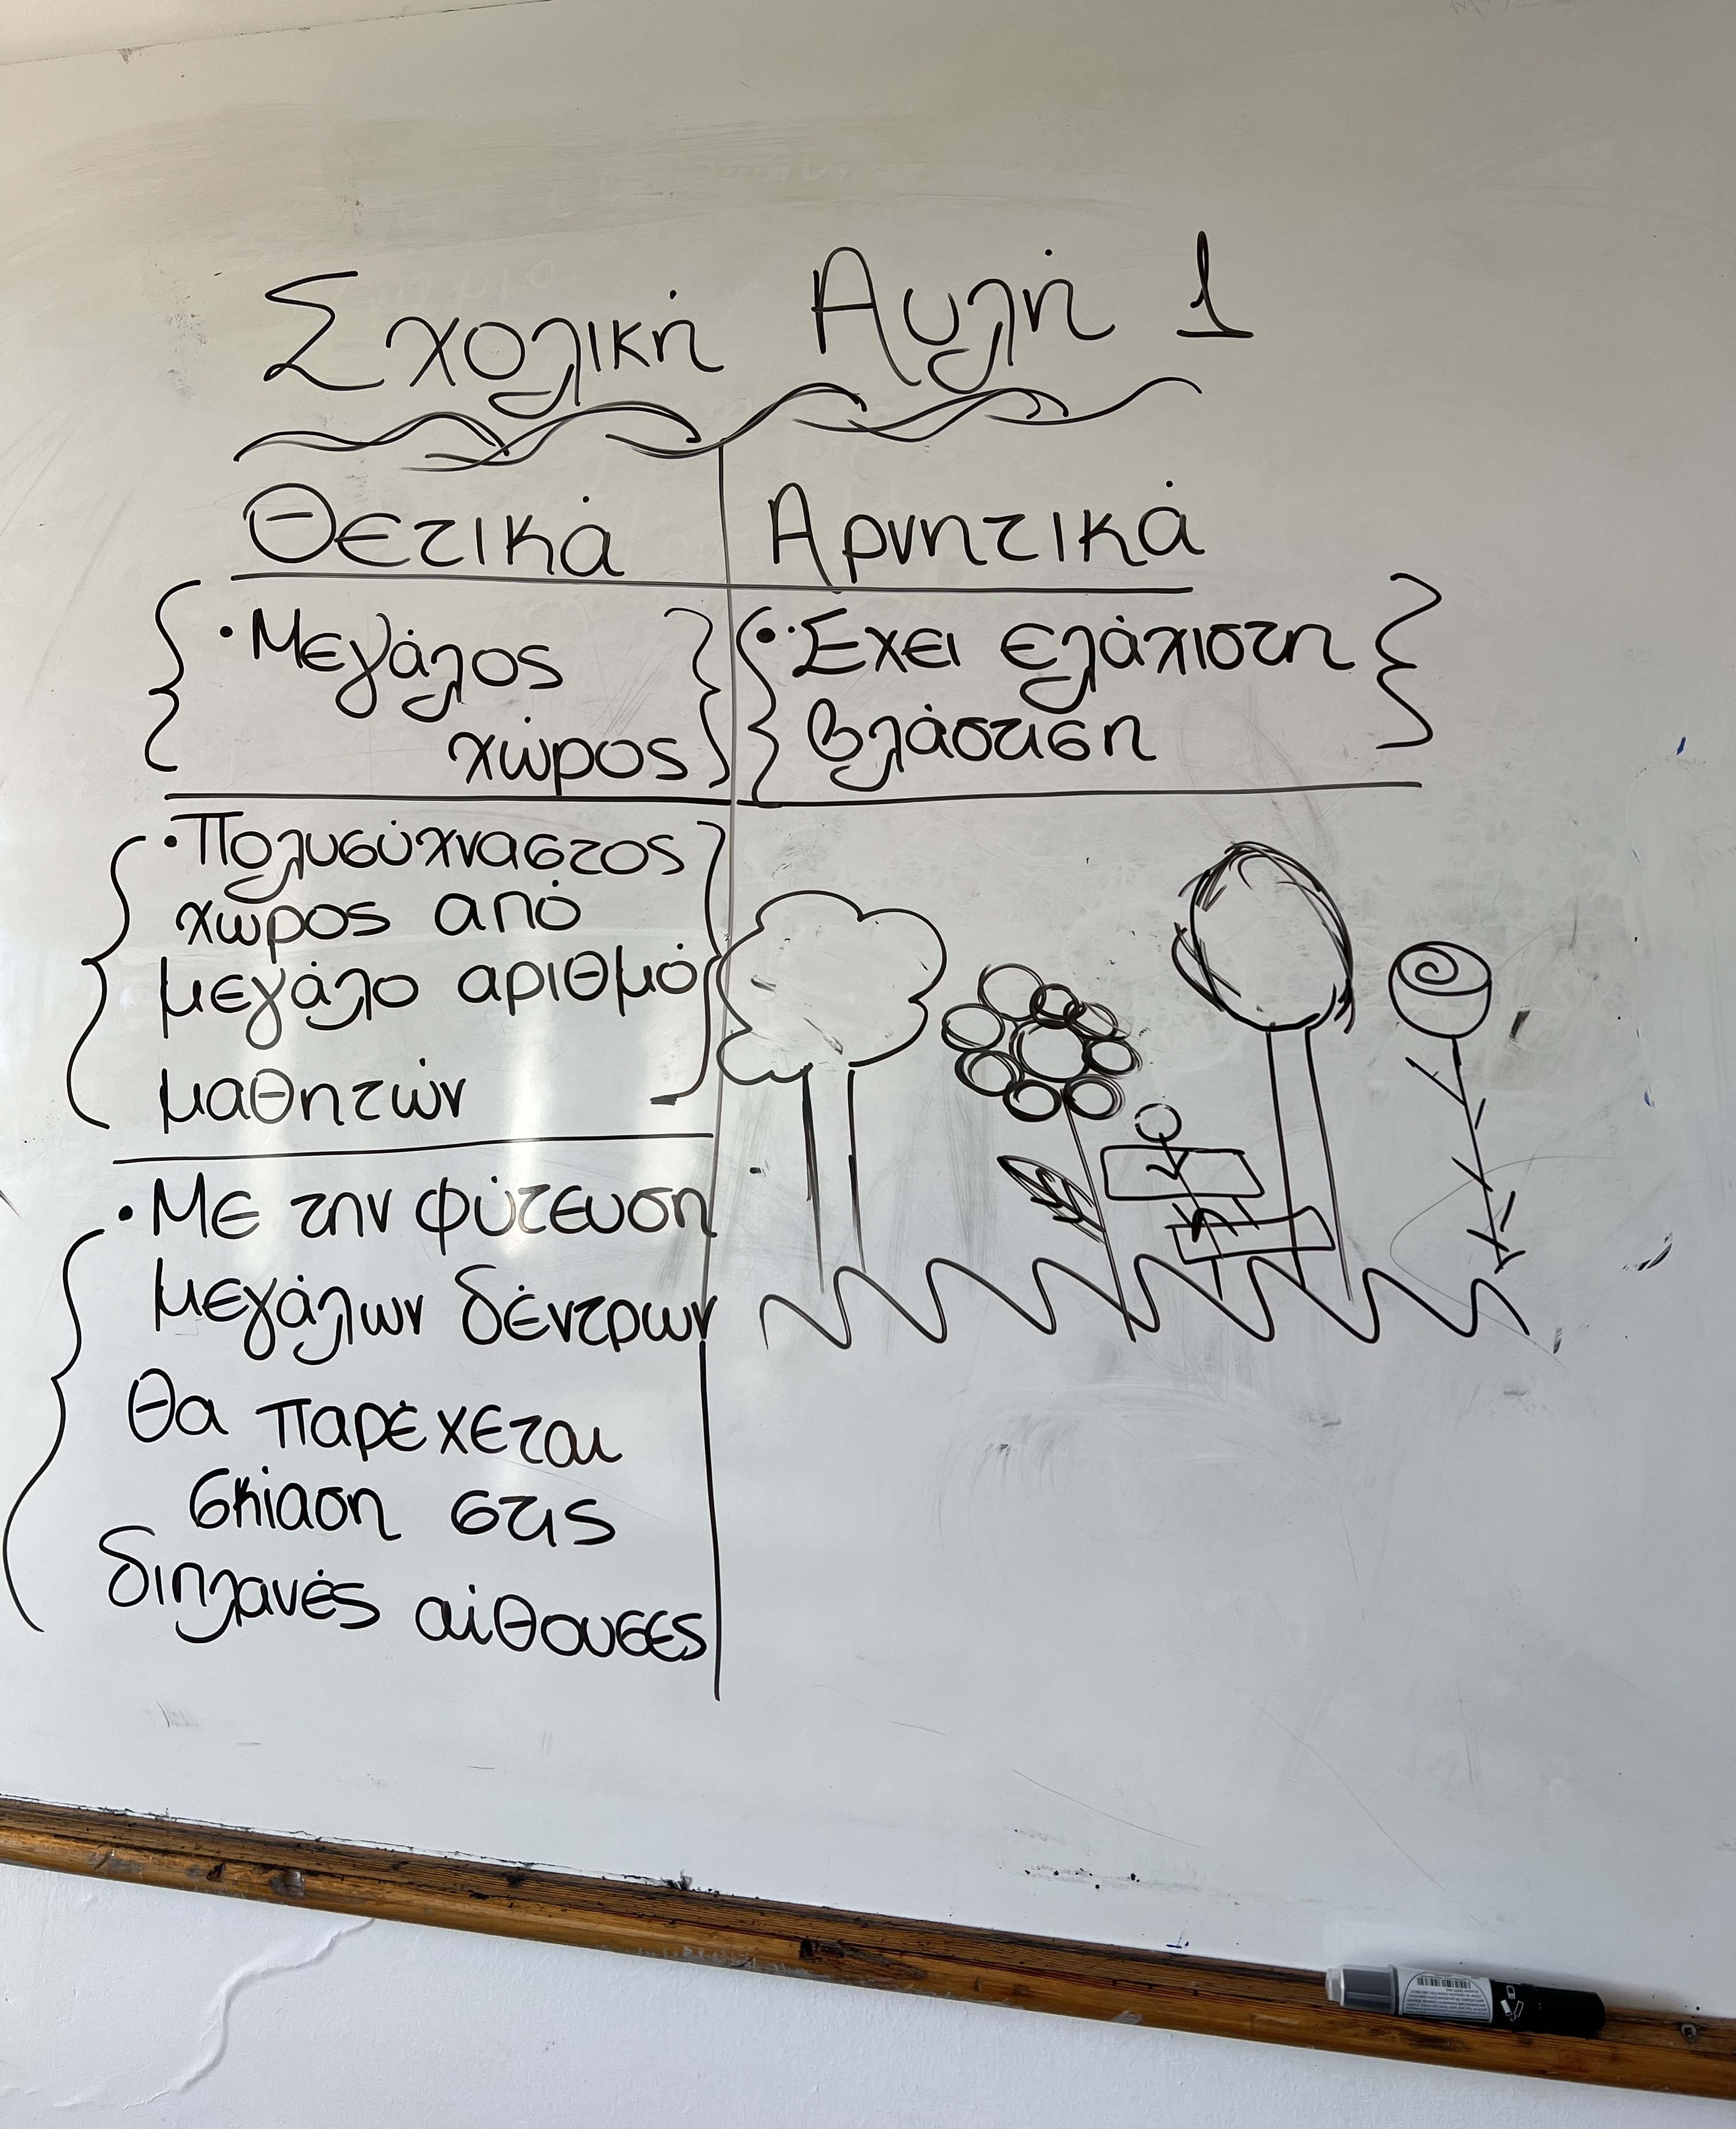 Σχολική Αυλή 1
Θετικά
Αρνητικά
• Μεγάλος
χώρος
• Έχει ελάχιστη
βλάστιση
• Πολυσύχναστος
χώρος από
μεγάλο αριθμό
μαθητών
• Με την φύτευση
μεγάλων δέντρων
θα παρέχεται
σκίαση στις
διπλανές αίθουσες